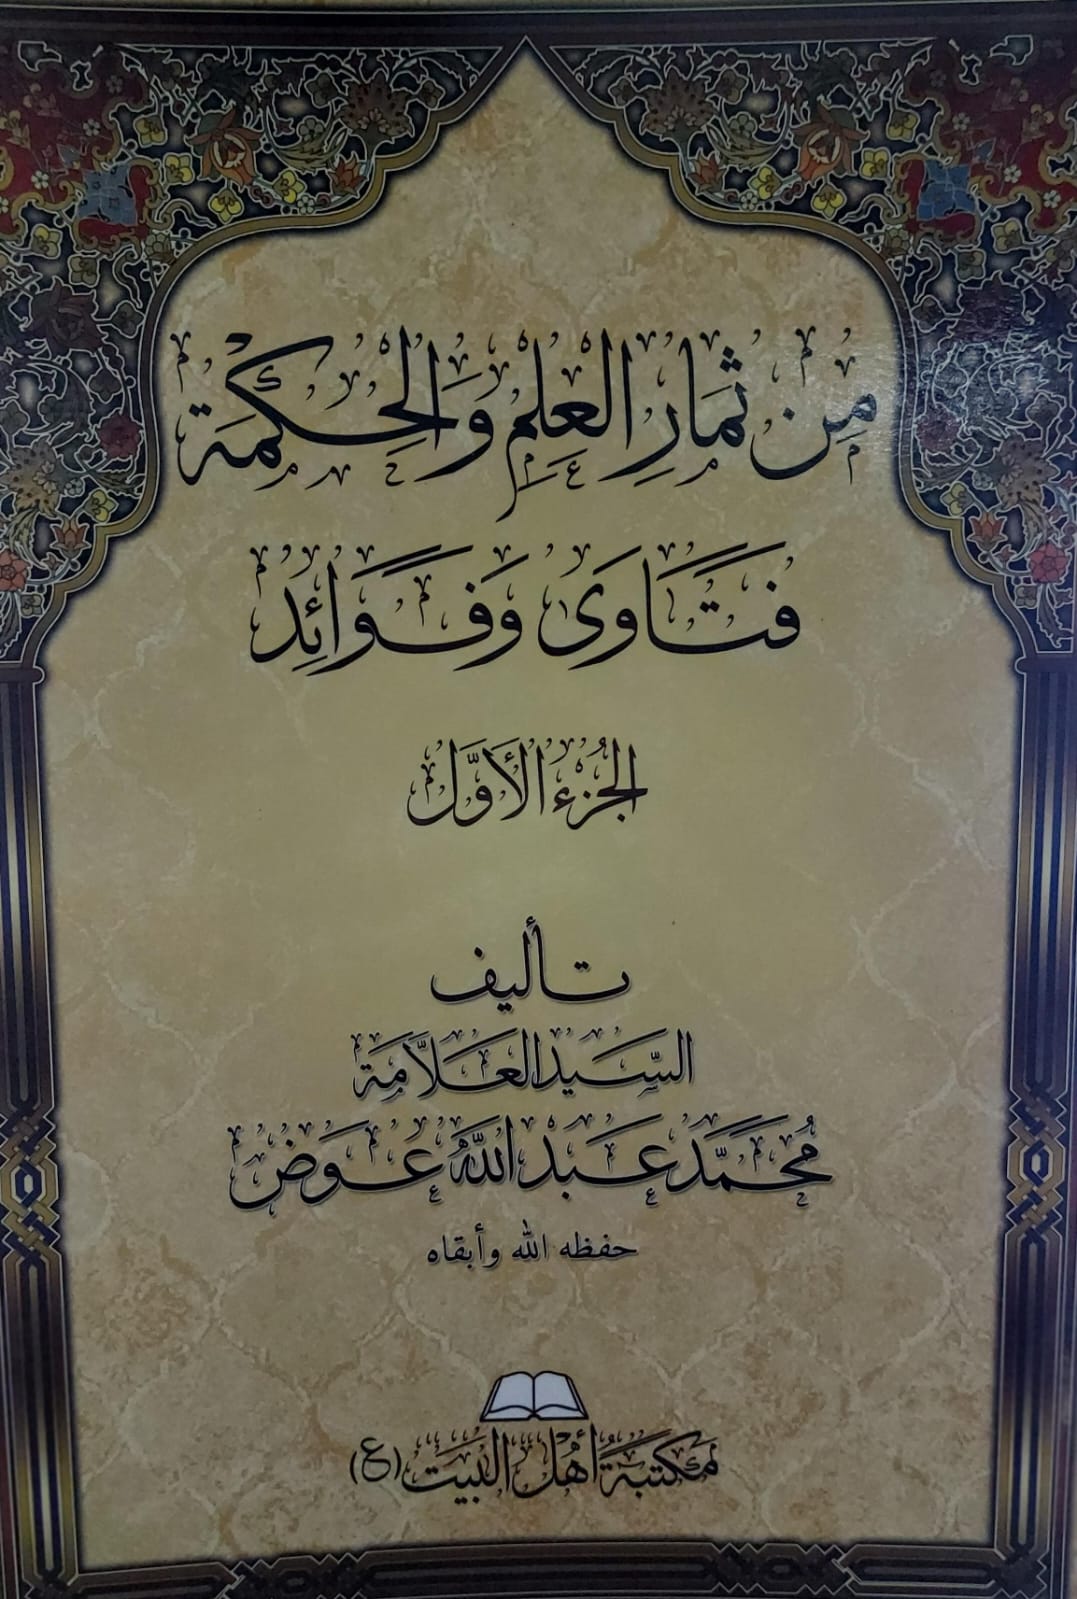 مِن ثمَارِ العِلمِ وَالحِكمَة
فتَاوَى وَفَوَائِد
الجُزء الأَوَّل
تأليف
السَّيد العَلاَّمَة
مُحَمَّد عَبْد اللَّه عَوَض
حفظه الله وأبقاه
مَكتبَةُ أهْل البَيت (ع)